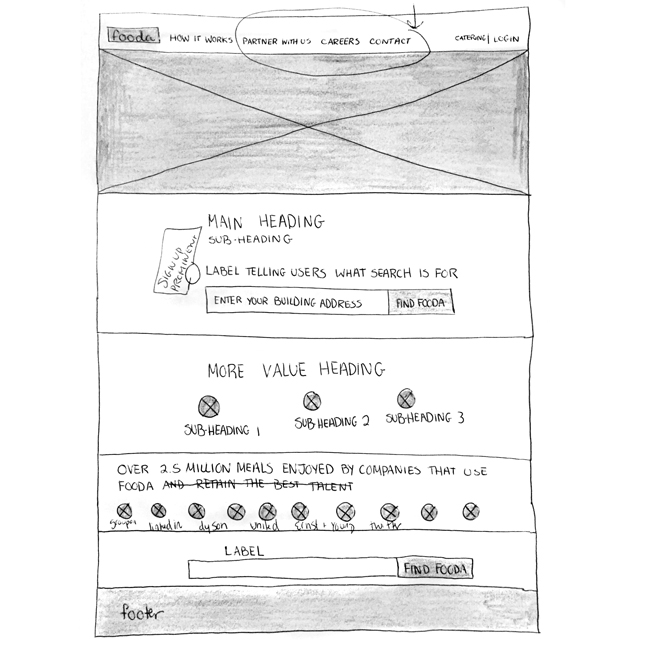 fooda HOW IT WORKS PARTNER WITH US CAREERS CONTACT CATERING | LOGIN
MAIN HEADING
SUB-HEADING
SIGN UP
PROMINENT
LABEL TELLING USERS WHAT SEARCH IS FOR
ENTER YOUR BUILDING ADDRESS FIND FOODA
MORE VALUE HEADING
SUB-HEADING 1 SUB-HEADING 2 SUB-HEADING 3
OVER 2.5 MILLION MEALS ENJOYED BY COMPANIES THAT USE
FOODA AND RETAIN THE BEST TALENT
linkedin dyson united Ernst + Young
LABEL
FIND FOODA
footer